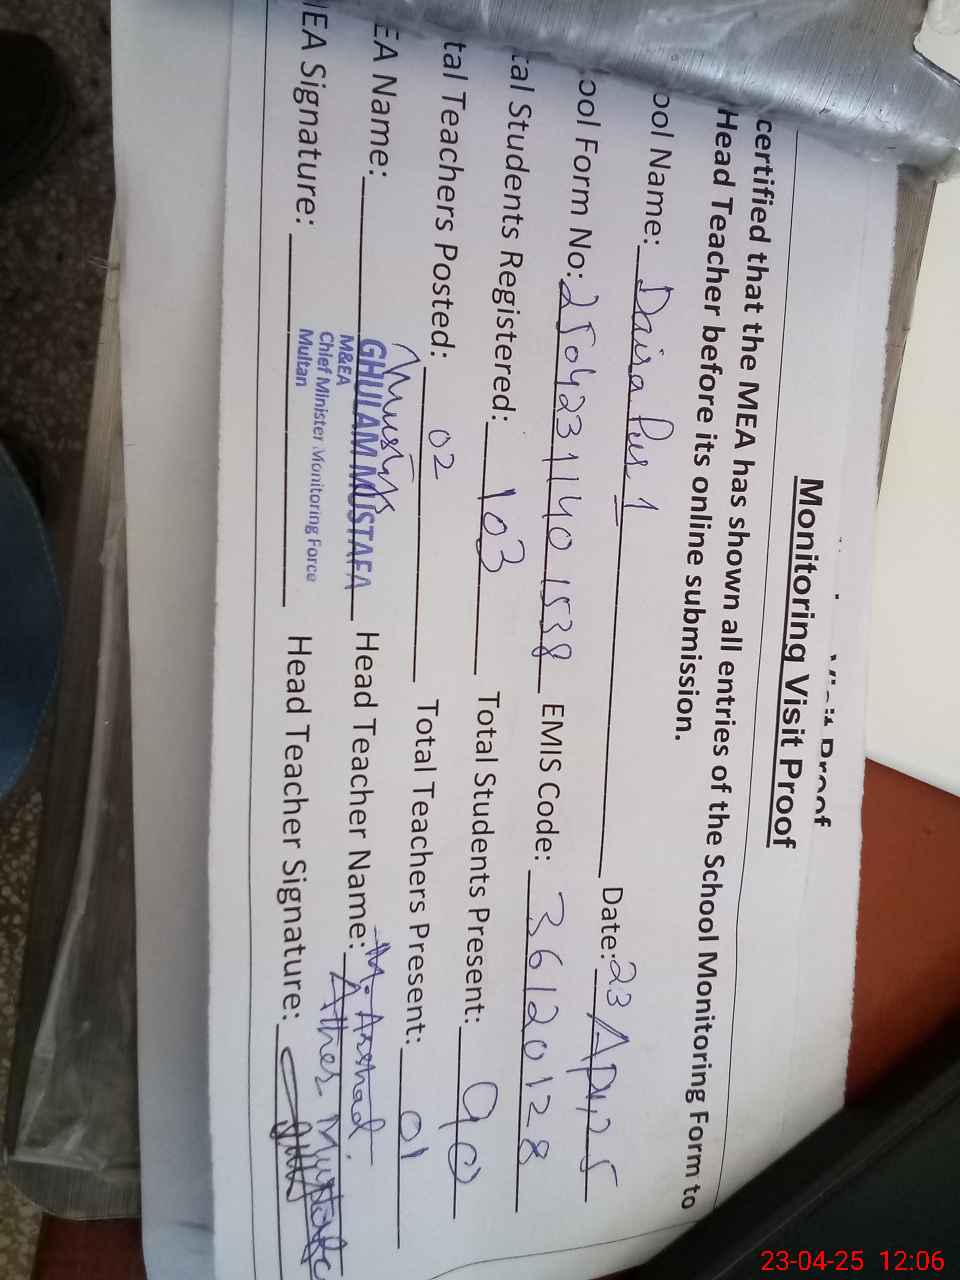 Visit Proof
Monitoring Visit Proof
certified that the MEA has shown all entries of the School Monitoring Form to
Head Teacher before its online submission.
ool Name: Daira Pur 1 Date: 23 Apr, 25
ool Form No: 25042311401538 EMIS Code: 36120128
tal Students Registered: 103 Total Students Present: 90
tal Teachers Posted: 02 Total Teachers Present: 01
EA Name: GHULAM MUSTAFA Head Teacher Name: M. Arshad
Ather
M&EA
Chief Minister Monitoring Force
Multan
EA Signature: Head Teacher Signature:
23-04-25 12:06